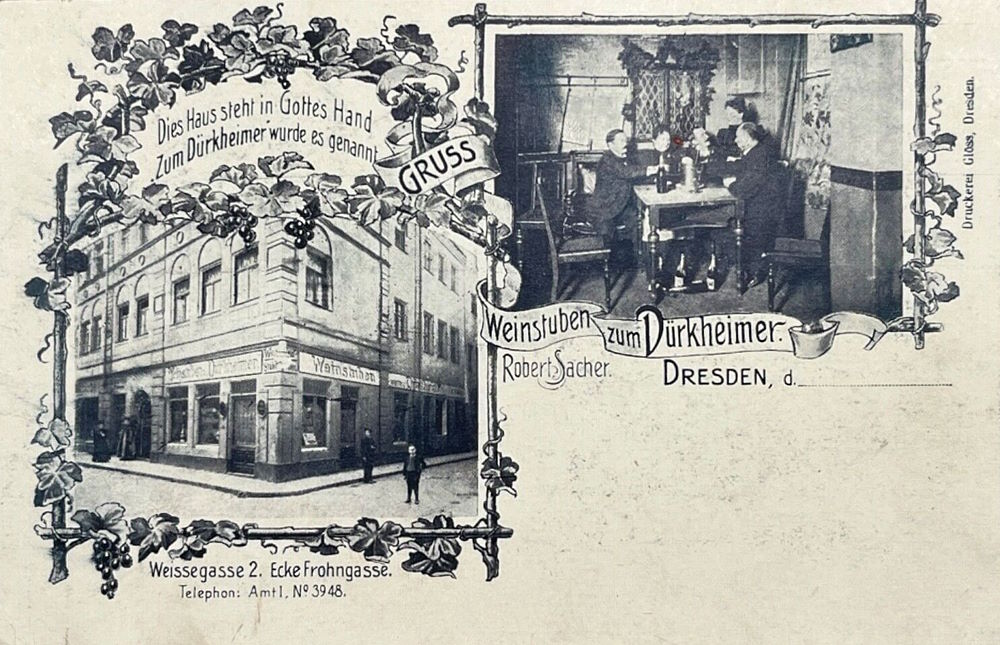 Dies Haus steht in Gottes Hand
"Zum Dürkheimer" wurde es genannt
GRUSS
Weinstuben zum Dürkheimer.
Robert Sacher.
DRESDEN, d.
Weinstuben
Weissegasse 2. Ecke Frohngasse.
Telephon: Amt 1, Nº 3948.
Druckerei Glöss, Dresden.